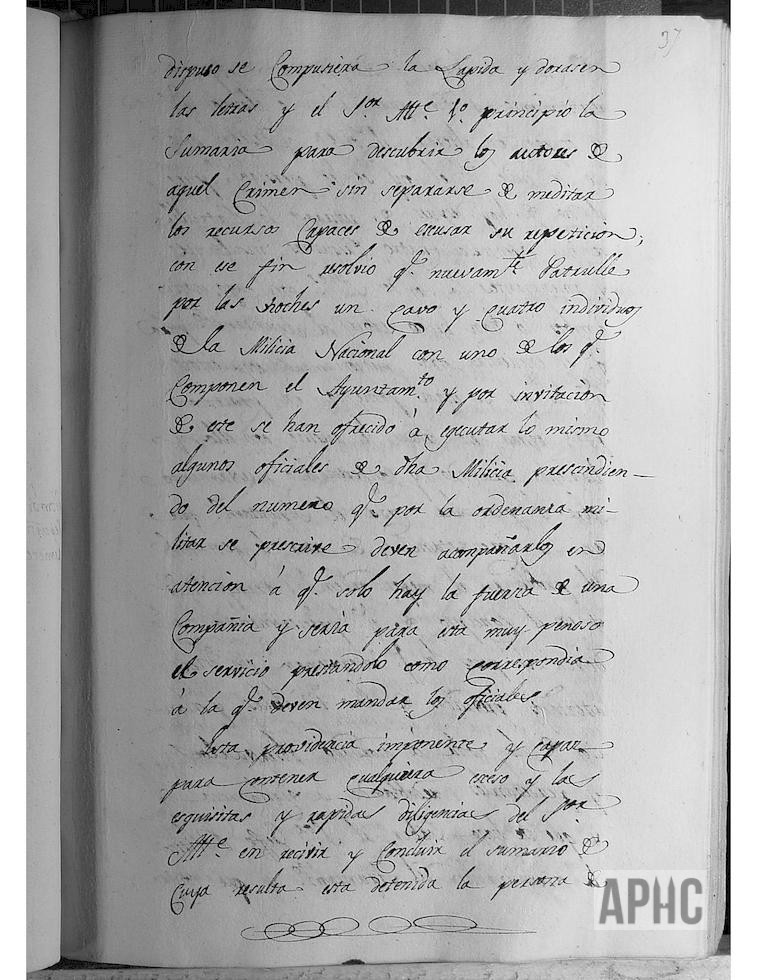 37
dispuso se Compusiera la Lapida y dorasen
las letras y el S.or Alt.e 1.o principio la
Sumaria para descubrir los autores de
aquel Crimen sin separarse de meditar
los recursos Capaces de escusar su repeticion;
con ese fin resolvio q.e nuevam.te Patrulle
por las noches un cavo y quatro individuos
de la Milicia Nacional con uno de los q.e
Componen el Ayuntam.to y por invitacion
de este se han ofrecido á egecutar lo mismo
algunos oficiales de dha Milicia prescindien-
do del numero q.e por la ordenanza mi-
litar se prescrive deven acompañarlos en
atencion á q.e solo hay la fuerza de una
Compañia y seria para esta muy penoso
el servicio prestandolo como correspondia
á la q.e deven mandar los oficiales
Esta providencia imponente y capaz
para contener cualquiera eceso y las
esquisitas y rapidas diligencias del S.or
Alt.e en recivir y Concluir el sumario de
Cuya resulta esta detenida la persona de
APHC